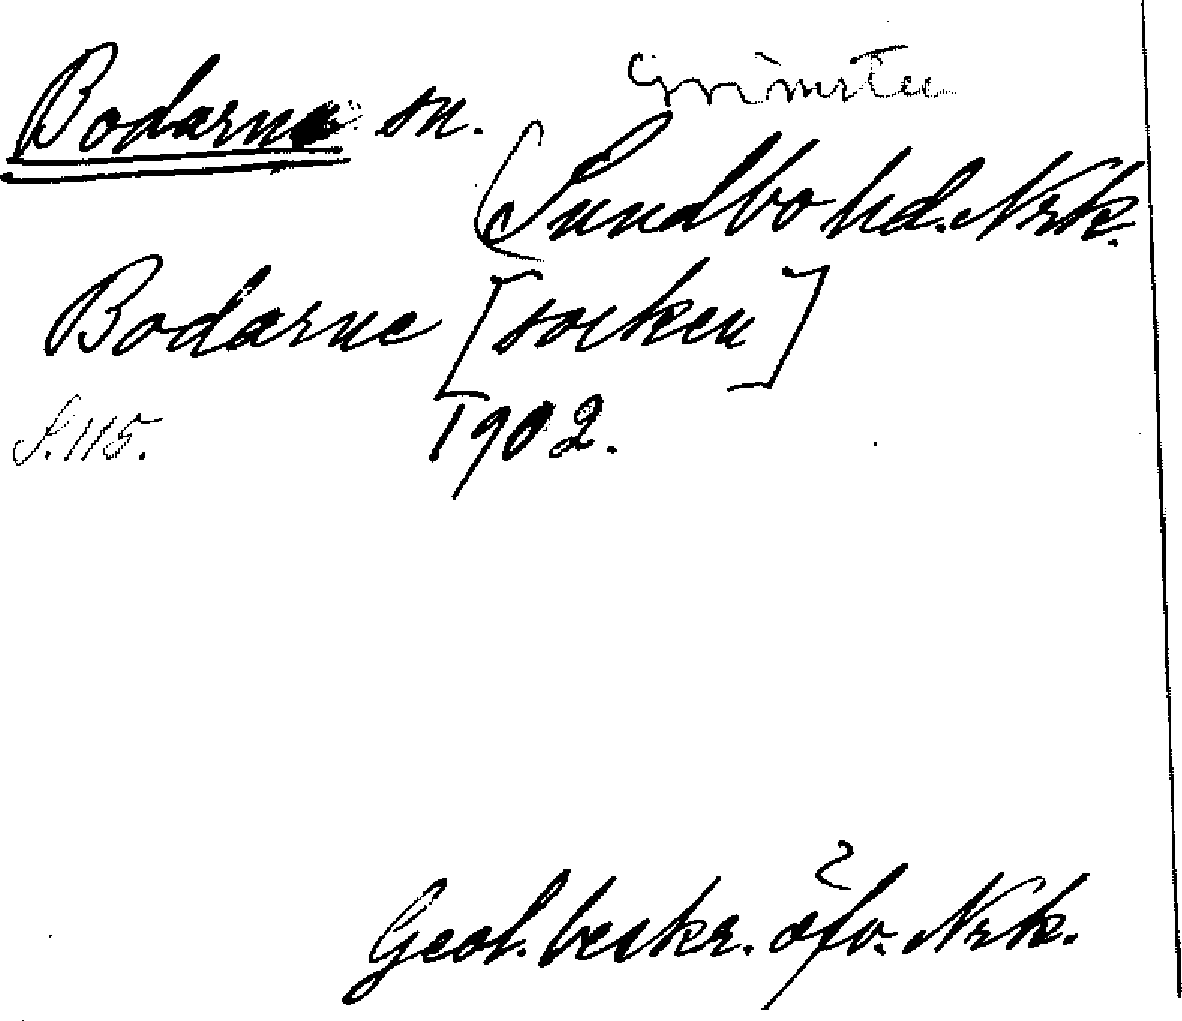 Bodarna sn. Grimsten
(Sundbo hd. Nrk.
Bodarne [socken]
S. 115. 1902.
Geol. beskr. öfv. Nrk.